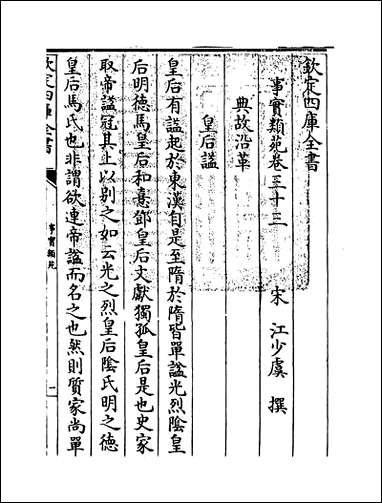 欽定四庫全書
事實類苑卷三十三
宋 江少虞 撰
典故沿革
皇后諡
皇后有諡起於東漢自是至隋於隋皆單諡光烈陰皇
后明德馬皇后和憙鄧皇后文獻獨孤皇后是也史家
取帝諡冠其上以别之如云光之烈皇后陰氏明之德
皇后馬氏也非謂欲連帝諡而名之也然則質家尚單
欽定四庫全書
事實類苑
一